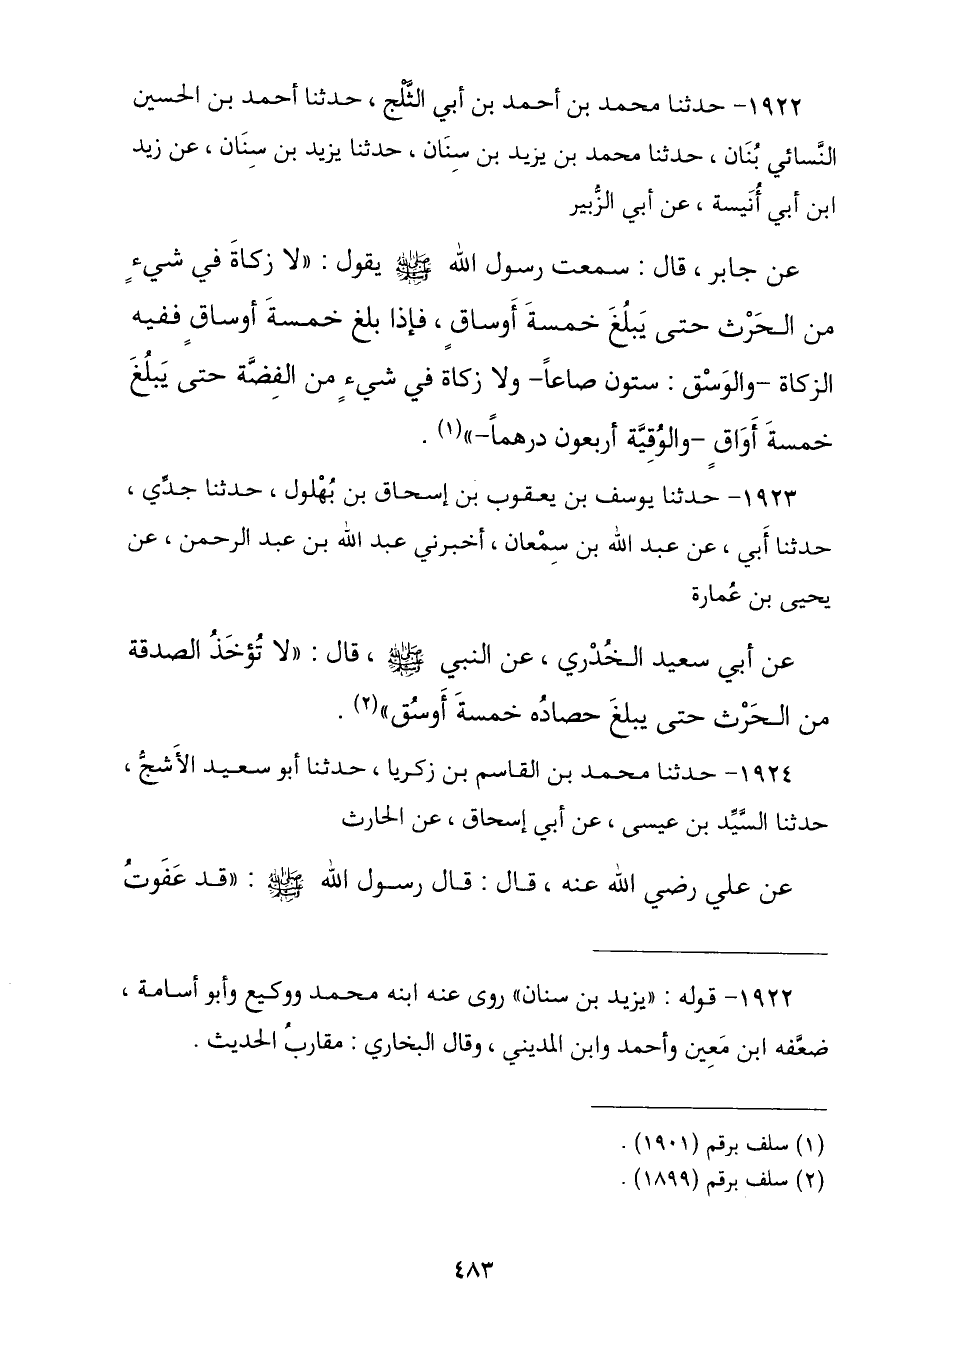 ١٩٢٢- حدثنا محمد بن أحمد بن أبي الثَّلْج ، حدثنا أحمد بن الحسين
النَّسائي بُنَان ، حدثنا محمد بن يزيد بن سِنَان ، حدثنا يزيد بن سِنَان ، عن زيد
ابن أبي أُنَيسة ، عن أبي الزُّبير
عن جابر ، قال : سمعت رسول الله ﷺ يقول : «لا زكاةَ في شيءٍ
من الحَرْث حتى يَبلُغَ خمسةَ أَوساقٍ ، فإذا بلغ خمسةَ أوساقٍ ففيه
الزكاة -والوَسْق : ستون صاعاً- ولا زكاة في شيءٍ من الفِضَّة حتى يَبلُغَ
خمسةَ أَوَاقٍ -والوُقِيَّة أربعون درهماً-»(١) .
١٩٢٣- حدثنا يوسف بن يعقوب بن إسحاق بن بُهْلول ، حدثنا جدِّي ،
حدثنا أَبي ، عن عبد الله بن سِمْعان ، أخبرني عبد الله بن عبد الرحمن ، عن
يحيى بن عُمارة
عن أبي سعيد الخُدْري ، عن النبي ﷺ ، قال : «لا تُؤخَذُ الصدقة
من الحَرْث حتى يبلغَ حصادُه خمسةَ أَوسُق»(٢) .
١٩٢٤- حدثنا محمد بن القاسم بن زكريا ، حدثنا أبو سعيد الأَشجُّ ،
حدثنا السَّيِّد بن عيسى ، عن أبي إسحاق ، عن الحارث
عن علي رضي الله عنه ، قال : قال رسول الله ﷺ : «قد عَفَوتُ
١٩٢٢- قوله : «يزيد بن سنان» روى عنه ابنه محمد ووكيع وأبو أسامة ،
ضعَّفه ابن مَعِين وأحمد وابن المديني ، وقال البخاري : مقاربُ الحديث .
(١) سلف برقم (١٩٠١) .
(٢) سلف برقم (١٨٩٩) .
٤٨٣